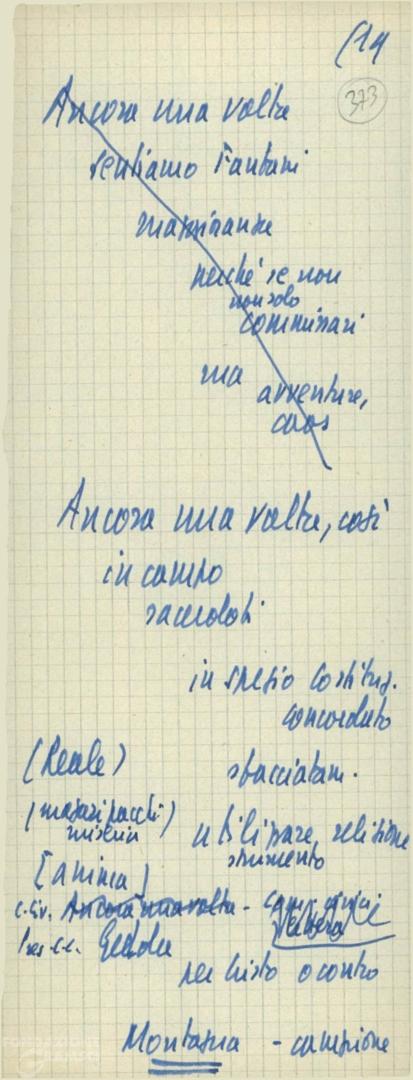 (14
373
Ancora una volta
sentiamo Fanfani
maggioranza
perché se non
non solo
commissari
ma avventure,
caos
Ancora una volta, così
in campo
sacerdoti
in spregio costituz.
concordato
(Reale)
sfacciatam.
(magari pacchi)
miseria
utilizzare religione
strumento
(anima)
c. civ. Ancora una volta - comit. civici
Pres. c.c. Gedda
per Cristo o contro
Montagna - campione